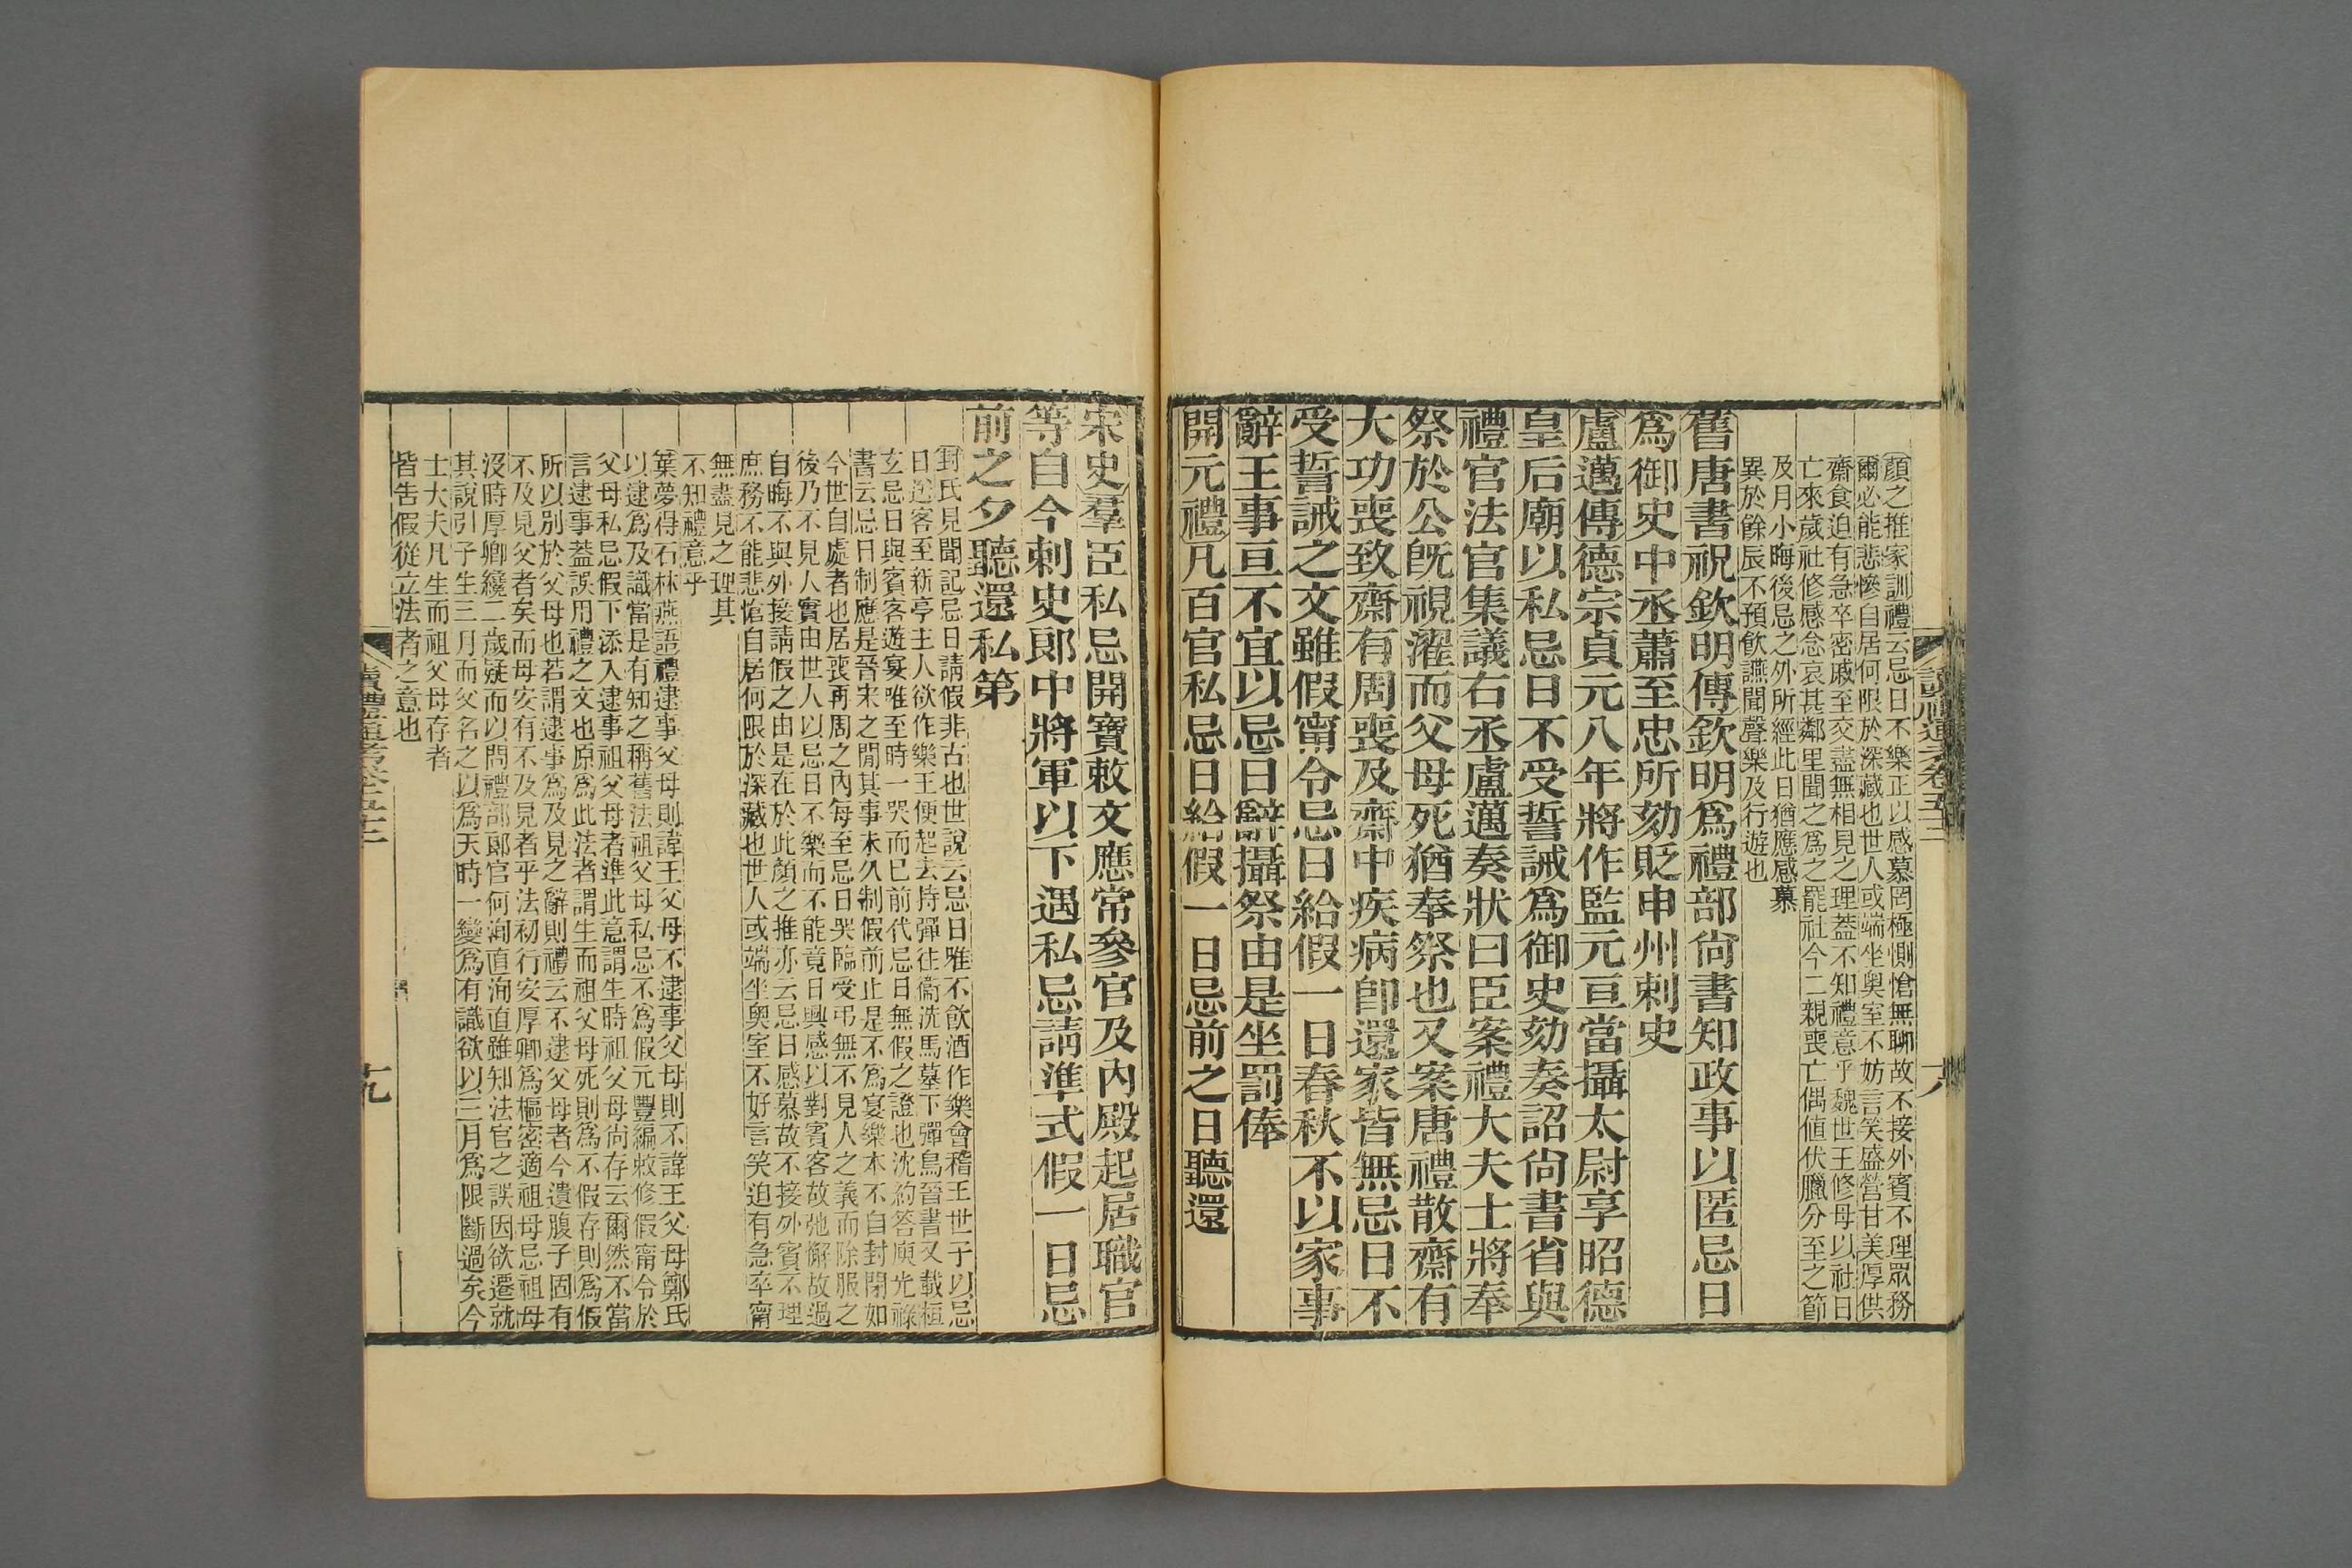 顏之推家訓禮云忌日不樂正以感慕罔極惻愴無聊故不接外賓不理眾務
爾必能悲慘自居何限於深藏也世人或端坐奧室不妨言笑盛營甘美厚供
齋食迫有急卒密戚至交盡無相見之理蓋不知禮意乎魏世王修母以社日
亡來歲社修感念哀甚鄰里聞之為之罷社今二親喪亡偶值伏臘分至之節
及月小晦後忌之外所經此日猶應感慕
異於餘辰不預飲讌聞聲樂及行遊也
舊唐書祝欽明傳欽明為禮部尙書知政事以匿忌日
為御史中丞蕭至忠所劾貶申州刺史
盧邁傳德宗貞元八年將作監元亘當攝太尉享昭德
皇后廟以私忌日不受誓誡為御史劾奏詔尙書省與
禮官法官集議右丞盧邁奏狀曰臣案禮大夫士將奉
祭於公旣視濯而父母死猶奉祭也又案唐禮散齋有
大功喪致齋有周喪及齋中疾病卽還家皆無忌日不
受誓誡之文雖假甯令忌日給假一日春秋不以家事
辭王事亘不宜以忌日辭攝祭由是坐罰俸
開元禮凡百官私忌日給假一日忌前之日聽還
宋史羣臣私忌開寶敕文應常參官及內殿起居職官
等自今刺史郎中將軍以下遇私忌請準式假一日忌
前之夕聽還私第
封氏見聞記忌日請假非古也世說云忌日唯不飲酒作樂會稽王世子以忌
日送客至新亭主人欲作樂王便起去持彈往衞洗馬墓下彈鳥晉書又載桓
玄忌日與賓客遊宴唯至時一哭而已前代忌日無假之證也沈約答庾光祿
書云忌日制應是晉宋之閒其事未久制假前止是不為宴樂本不自封閉如
今世自處者也居喪再周之內每至忌日哭臨受弔無不見人之義而除服之
後乃不見人實由世人以忌日不樂而不能竟日興感以對賓客故弛懈故過
自晦不與外接請假之由是在於此顏之推亦云忌日感慕故不接外賓不理
庶務不能悲愴自居何限於深藏也世人或端坐奧室不好言笑迫有急卒甯
無盡見之理其
不知禮意乎
葉夢得石林燕語禮逮事父母則諱王父母不逮事父母則不諱王父母鄭氏
以逮為及識當是有知之稱舊法祖父母私忌不為假元豐編敕修假甯令於
父母私忌假下添入逮事祖父母者準此意謂生時祖父母尙存云爾然不當
言逮事蓋誤用禮之文也原為此法者謂生而祖父母死則為不假存則為假
所以別於父母也若謂逮事為及見之辭則禮云不逮父母者今遺腹子固有
不及見父者矣而母安有不及見者乎法初行安厚卿為樞密適祖母忌祖母
沒時厚卿纔二歲疑而以問禮部郞官何洵直洵直雖知法官之誤因欲遷就
其說引子生三月而父名之以為天時一變為有識欲以三月為限斷過矣今
士大夫凡生而祖父母存者
皆吿假從立法者之意也
讀禮通考卷五十二
十九